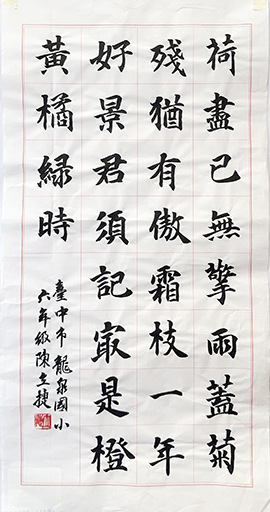 荷盡已無擎雨蓋菊
殘猶有傲霜枝一年
好景君須記㝡是橙
黃橘綠時
臺中市龍泉國小
六年級陳立捷